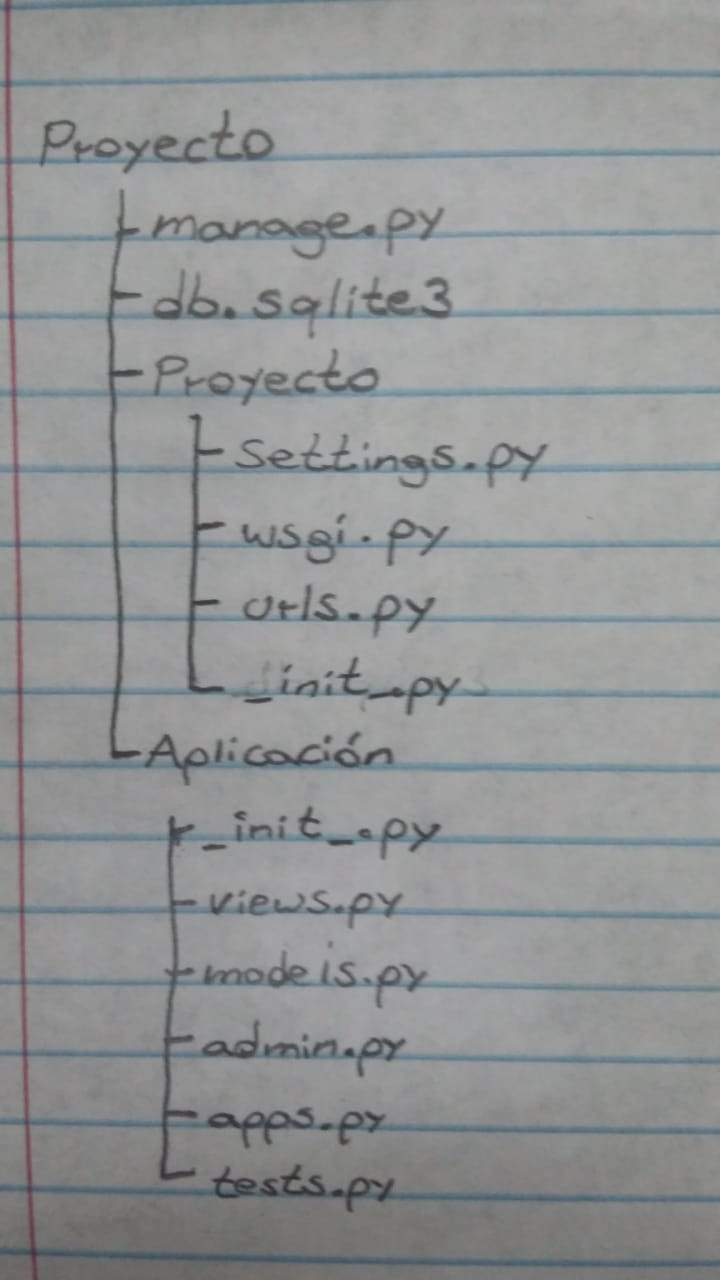 Proyecto
manage.py
db.sqlite3
Proyecto
settings.py
wsgi.py
urls.py
_init_.py
Aplicación
_init_.py
views.py
models.py
admin.py
apps.py
tests.py